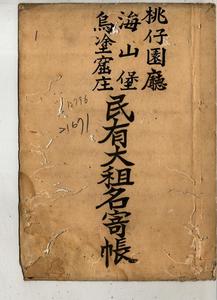 桃仔園廳
海山堡
烏塗窟庄
民有大租名寄帳
1
21671